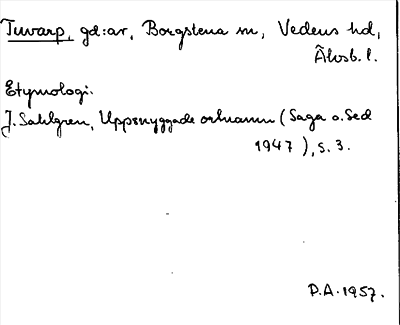 Tuvarp, gd:ar, Borgstena sn, Vedens hd,
Älvsb. l.
Etymologi:
J. Sahlgren, Uppsnyggade ortnamn (Saga o. Sed
1947), s. 3.
P.A. 1957.